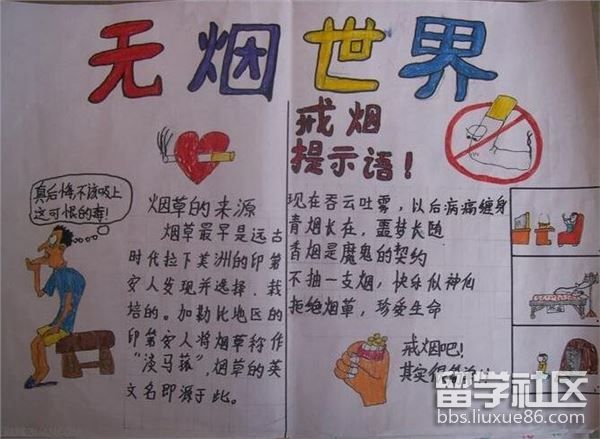 无烟世界
戒烟
提示语!
真后悔不该吸上
这可恨的毒!
烟草的来源
烟草最早是远古
时代拉丁美洲的印第
安人发现并选择.栽
培的。加勒比地区的
印第安人将烟草称作
“淡马菰”,烟草的英
文名即源于此。
现在吞云吐雾,以后病痛缠身
青烟长在,噩梦长随
香烟是魔鬼的契约
不抽一支烟,快乐似神仙
拒绝烟草,珍爱生命
戒烟吧!
其实很
留学社区
bbs.liuxue86.com